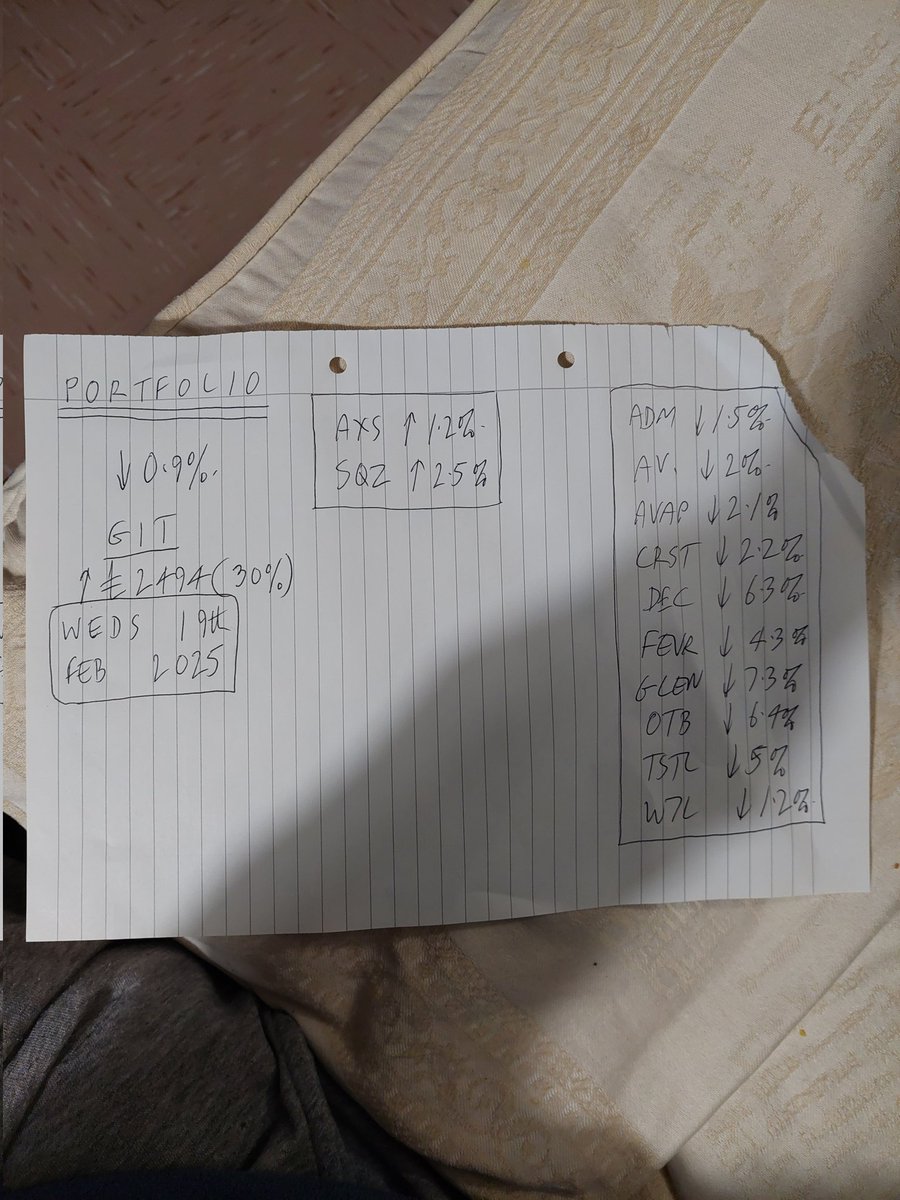 PORTFOLIO
↓ 0.9%.
GIT
↑ £2494 (30%)
WEDS 19th
FEB 2025
AXS ↑ 1.2%.
SQZ ↑ 2.5%
ADM ↓ 1.5%.
AV. ↓ 2%.
AVAP ↓ 2.1%
CRST ↓ 2.2%
DEC ↓ 6.3%.
FEVR ↓ 4.3%
GLEN ↓ 7.3%
OTB ↓ 6.4%
TSTL ↓ 5%
↓ 1.2%.